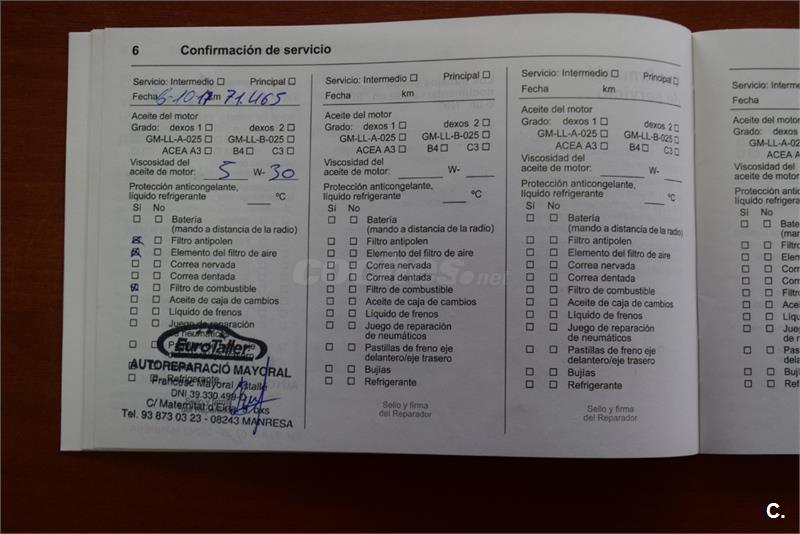 6 Confirmación de servicio
Servicio: Intermedio ☐ Principal ☐
Fecha 6-10-17 km 71.465
Aceite del motor
Grado: dexos 1 ☐ dexos 2 ☐
GM-LL-A-025 ☐ GM-LL-B-025 ☐
ACEA A3 ☐ B4 ☐ C3 ☐
Viscosidad del
aceite de motor: 5 W- 30
Protección anticongelante,
líquido refrigerante ____ ºC
Sí No
☐ ☐ Batería
(mando a distancia de la radio)
☒ ☐ Filtro antipolen
☒ ☐ Elemento del filtro de aire
☐ ☐ Correa nervada
☐ ☐ Correa dentada
☒ ☐ Filtro de combustible
☐ ☐ Aceite de caja de cambios
☐ ☐ Líquido de frenos
☐ ☐ Juego de reparación
de neumáticos
EuroTaller
AUTOREPARACIÓ MAYORAL
☐ ☐ Refrigerante
Francesc Mayoral Batalle
DNI 39.330.499
C/ Maternitat d'Elna
Tel. 93 873 03 23 - 08243 MANRESA
Servicio: Intermedio ☐ Principal ☐
Fecha km
Aceite del motor
Grado: dexos 1 ☐ dexos 2 ☐
GM-LL-A-025 ☐ GM-LL-B-025 ☐
ACEA A3 ☐ B4 ☐ C3 ☐
Viscosidad del
aceite de motor: ____ W- ____
Protección anticongelante,
líquido refrigerante ____ ºC
Sí No
☐ ☐ Batería
(mando a distancia de la radio)
☐ ☐ Filtro antipolen
☐ ☐ Elemento del filtro de aire
☐ ☐ Correa nervada
☐ ☐ Correa dentada
☐ ☐ Filtro de combustible
☐ ☐ Aceite de caja de cambios
☐ ☐ Líquido de frenos
☐ ☐ Juego de reparación
de neumáticos
☐ ☐ Pastillas de freno eje
delantero/eje trasero
☐ ☐ Bujías
☐ ☐ Refrigerante
Sello y firma
del Reparador
Servicio: Intermedio ☐ Principal ☐
Fecha km
Aceite del motor
Grado: dexos 1 ☐ dexos 2 ☐
GM-LL-A-025 ☐ GM-LL-B-025 ☐
ACEA A3 ☐ B4 ☐ C3 ☐
Viscosidad del
aceite de motor: ____ W- ____
Protección anticongelante,
líquido refrigerante ____ ºC
Sí No
☐ ☐ Batería
(mando a distancia de la radio)
☐ ☐ Filtro antipolen
☐ ☐ Elemento del filtro de aire
☐ ☐ Correa nervada
☐ ☐ Correa dentada
☐ ☐ Filtro de combustible
☐ ☐ Aceite de caja de cambios
☐ ☐ Líquido de frenos
☐ ☐ Juego de reparación
de neumáticos
☐ ☐ Pastillas de freno eje
delantero/eje trasero
☐ ☐ Bujías
☐ ☐ Refrigerante
Sello y firma
del Reparador
Servicio:
Fecha
Aceite del motor
Grado:
GM-LL-A
ACEA A
Viscosidad del
aceite de motor:
Protección antic
líquido refrigerante
Sí No
☐ ☐ Batería
(mando
☐ ☐ Filtro
☐ ☐ Eleme
☐ ☐ Corre
☐ ☐ Corre
☐ ☐ Filtro
☐ ☐ Aceite
☐ ☐ Líquid
☐ ☐ Juego
de ne
☐ ☐ Pastil
delan
☐ ☐ Bujía
☐ ☐ Refri
coches.net
C.